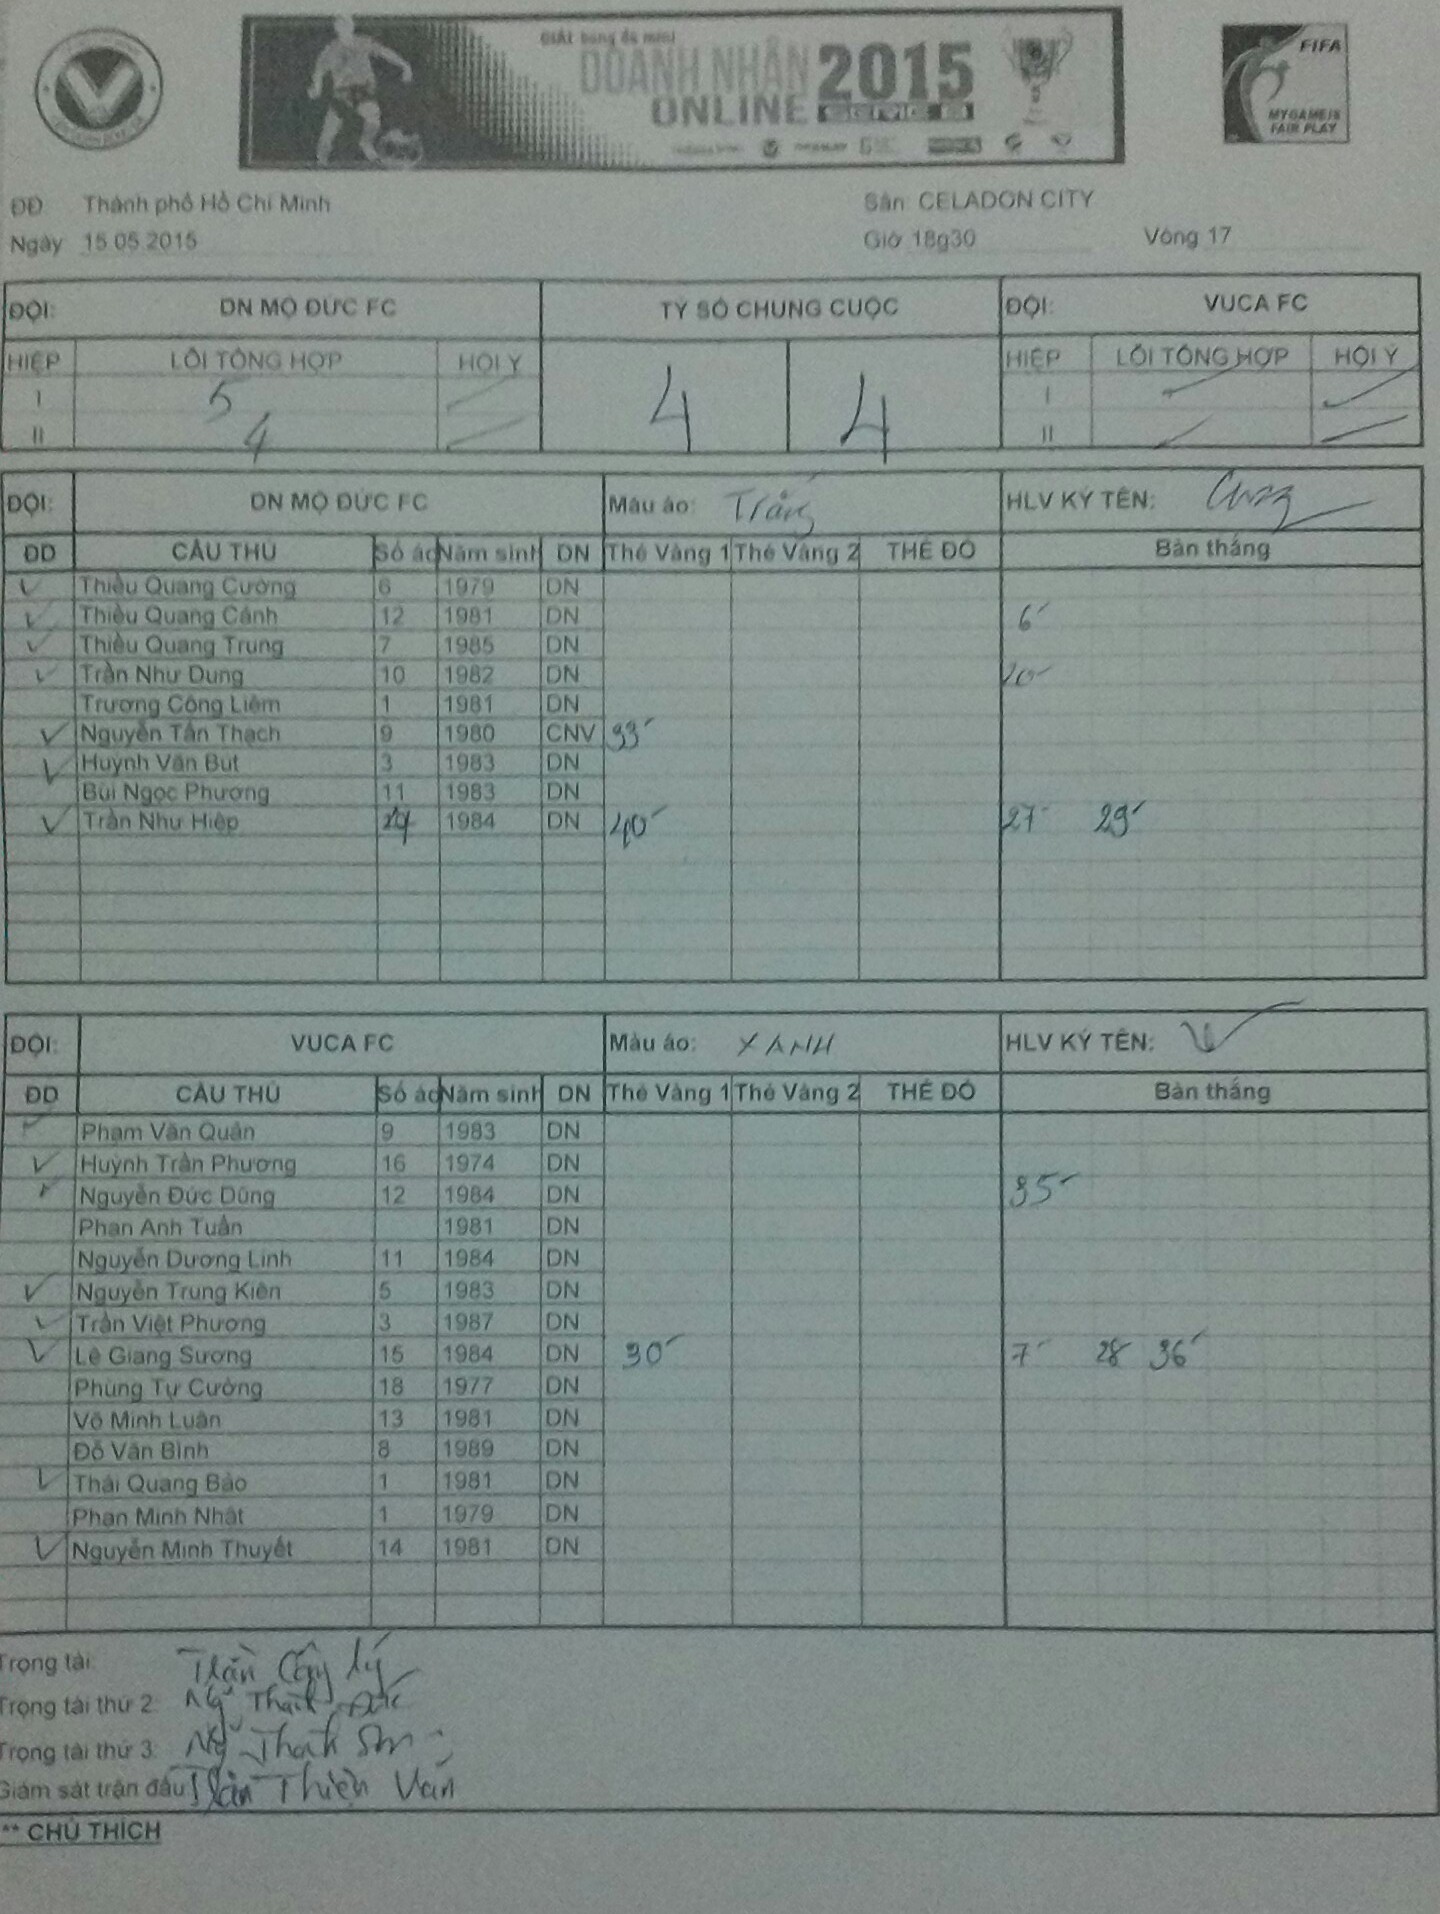 GIẢI bóng đá mini
DOANH NHÂN 2015
ONLINE
FIFA
MY GAME IS
FAIR PLAY
ĐĐ Thành phố Hồ Chí Minh Sân CELADON CITY
Ngày 15.05.2015 Giờ 18g30 Vòng 17
ĐỘI: DN MỘ ĐỨC FC TỶ SỐ CHUNG CUỘC ĐỘI: VUCA FC
HIỆP LỖI TỔNG HỢP HỘI Ý 4 4 HIỆP LỖI TỔNG HỢP HỘI Ý
I 5 I
II 4 II
ĐỘI: DN MỘ ĐỨC FC Màu áo: Trắng HLV KÝ TÊN:
ĐD CẦU THỦ Số áo Năm sinh DN Thẻ Vàng 1 Thẻ Vàng 2 THẺ ĐỎ Bàn thắng
Thiều Quang Cường 6 1979 DN
Thiều Quang Cảnh 12 1981 DN 6'
Thiều Quang Trung 7 1985 DN
Trần Như Dung 10 1982 DN 20'
Trương Công Liêm 1 1981 DN
Nguyễn Tấn Thạch 9 1980 CNV 33'
Huỳnh Văn Bút 3 1983 DN
Bùi Ngọc Phương 11 1983 DN
Trần Như Hiệp 1984 DN 40' 27' 29'
ĐỘI: VUCA FC Màu áo: XANH HLV KÝ TÊN:
ĐD CẦU THỦ Số áo Năm sinh DN Thẻ Vàng 1 Thẻ Vàng 2 THẺ ĐỎ Bàn thắng
Phạm Văn Quân 9 1983 DN
Huỳnh Trần Phương 16 1974 DN
Nguyễn Đức Dũng 12 1984 DN 35'
Phan Anh Tuấn 1981 DN
Nguyễn Dương Linh 11 1984 DN
Nguyễn Trung Kiên 5 1983 DN
Trần Việt Phương 3 1987 DN
Lê Giang Sương 15 1984 DN 30' 7' 28 36'
Phùng Tự Cường 18 1977 DN
Võ Minh Luân 13 1981 DN
Đỗ Văn Bình 8 1989 DN
Thái Quang Bảo 1 1981 DN
Phan Minh Nhật 1 1979 DN
Nguyễn Minh Thuyết 14 1981 DN
Trọng tài: Trần Lý
Trọng tài thứ 2: Ng Thành
Trọng tài thứ 3: Ng Thanh Sơn
Giám sát trận đấu Trần Thiện Văn
** CHÚ THÍCH